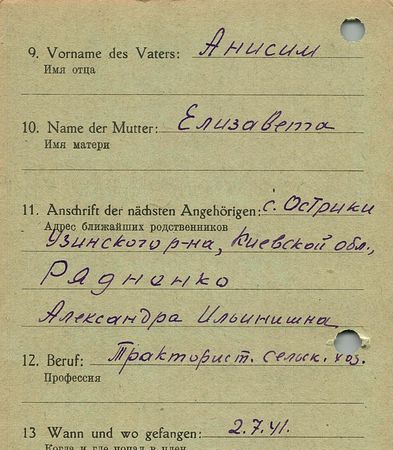 9. Vorname des Vaters: Анисим
Имя отца
10. Name der Mutter: Елизавета
Имя матери
11. Anschrift der nächsten Angehörigen: с. Острики
Адрес ближайших родственников
Узинского р-на, Киевской обл.,
Радненко
Александра Ильинишна
12. Beruf: Тракторист. сельск. хоз.
Профессия
13 Wann und wo gefangen: 2.7.41.
Когда и где попал в плен